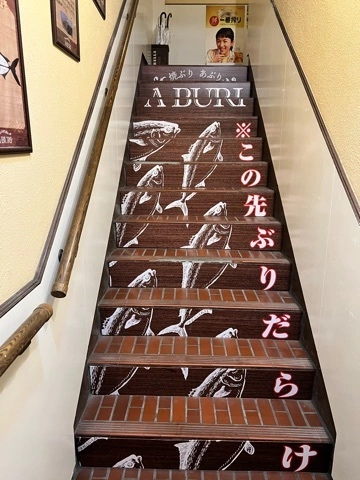 一番搾り
焼ぶり あぶり
ABURI
※この先ぶりだらけ